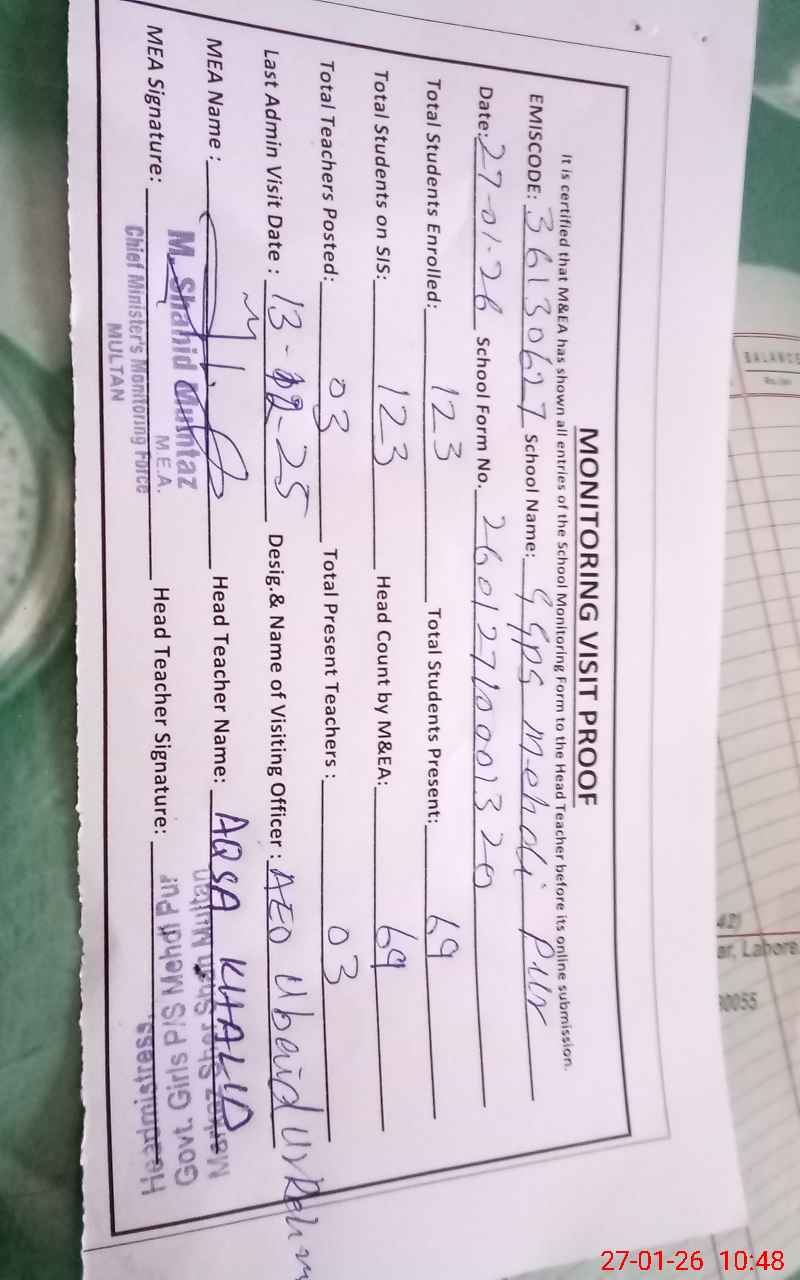 MONITORING VISIT PROOF
It is certified that M&EA has shown all entries of the School Monitoring Form to the Head Teacher before its online submission.
EMISCODE: 36130627 School Name: GGPS Mehdi Pur
Date: 27-01-26 School Form No. 26012710001320
Total Students Enrolled: 123 Total Students Present: 69
Total Students on SIS: 123 Head Count by M&EA: 69
Total Teachers Posted: 03 Total Present Teachers : 03
Last Admin Visit Date : 13-12-25 Desig.& Name of Visiting Officer : AEO Ubaid Ur Rehm
MEA Name : Head Teacher Name: AQSA KHALID
MEA Signature: Head Teacher Signature:
M. Shahid Mumtaz
M.E.A.
Chief Minister's Monitoring Force
MULTAN
Headmistress
Govt. Girls P/S Mehdi Pur
Markaz Sher Shah Multan
BALANCE
42)
ar, Lahore
0055
27-01-26 10:48